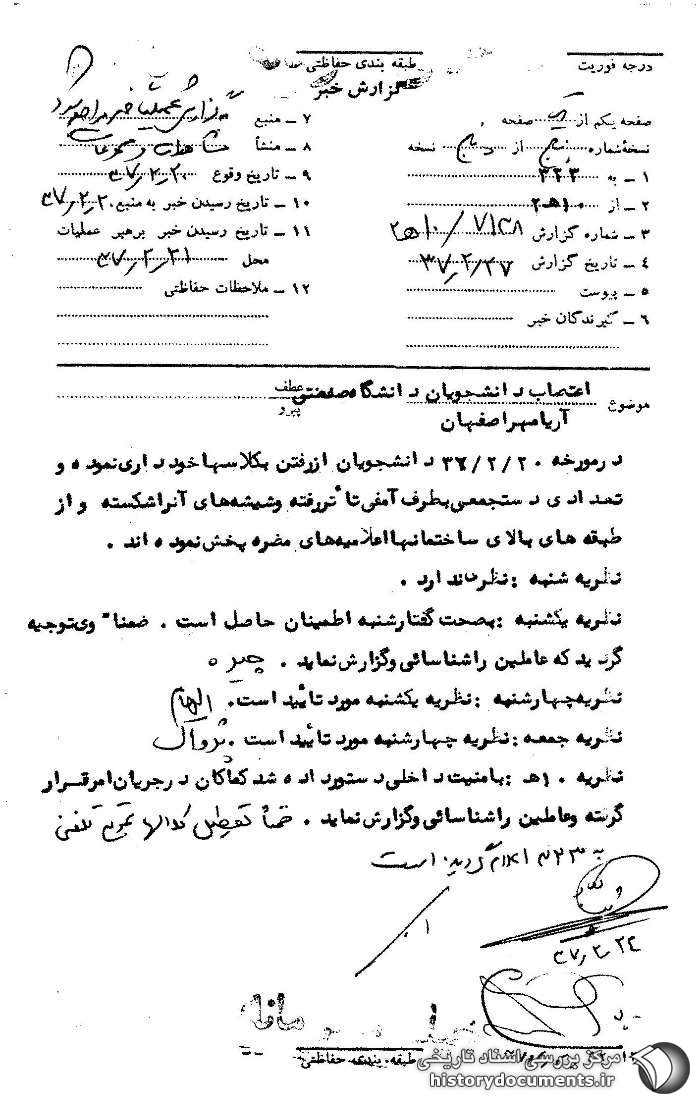 درجه فوریت
طبقه بندی حفاظتی
گزارش خبر
صفحه یکم از یک صفحه
نسخهٔ شماره پنج از پنج نسخه
۱ – به ۳۲۳
۲ – از ۱۰ﻫ۲
۳ – شماره گزارش ۷۱۲۸ / ۱۰ﻫ۲
۴ – تاریخ گزارش ۳۷٫۲٫۲۷
۵ – پیوست
۶ – گیرندگان خبر
۷ – منبع
۸ – منشأ مشاهدات و مسموعات
۹ – تاریخ وقوع ۳۷٫۲٫۲۰
۱۰ – تاریخ رسیدن خبر به منبع ۳۷٫۲٫۲۰
۱۱ – تاریخ رسیدن خبر برهبر عملیات
محل ۳۷٫۲٫۲۱
۱۲ – ملاحظات حفاظتی
موضوع اعتصاب دانشجویان دانشگاه صنعتی
آریامهر اصفهان
عطف
پیرو
درمورخه ۳۷/۲/۲۰ دانشجویان ازرفتن بکلاسها خود داری نموده و
تعدادی دستجمعی بطرف آمفی تأتر رفته وشیشه های آنرا شکسته و از
طبقه های بالای ساختمانها اعلامیه های مضره پخش نموده اند .
نظریه شنبه : نظر ندارد .
نظریه یکشنبه : بصحت گفتار شنبه اطمینان حاصل است . ضمنا" وی توجیه
گردید که عاملین راشناسائی وگزارش نماید . چیره
نظریه چهارشنبه : نظریه یکشنبه مورد تائید است . الهام
نظریه جمعه : نظریه چهارشنبه مورد تائید است . پژواک
نظریه ۱۰ﻫ : بامنیت داخلی دستور داده شد کماکان درجریان امر قرار
گرفته وعاملین راشناسائی وگزارش نماید . ضمناً تعطیل کلاسها تلفنی
به ۳۲۳ اعلام گردیده است
۳۷٫۲٫۲۴
طبقه بندی حفاظتی
مرکز بررسی اسناد تاریخی
historydocuments.ir